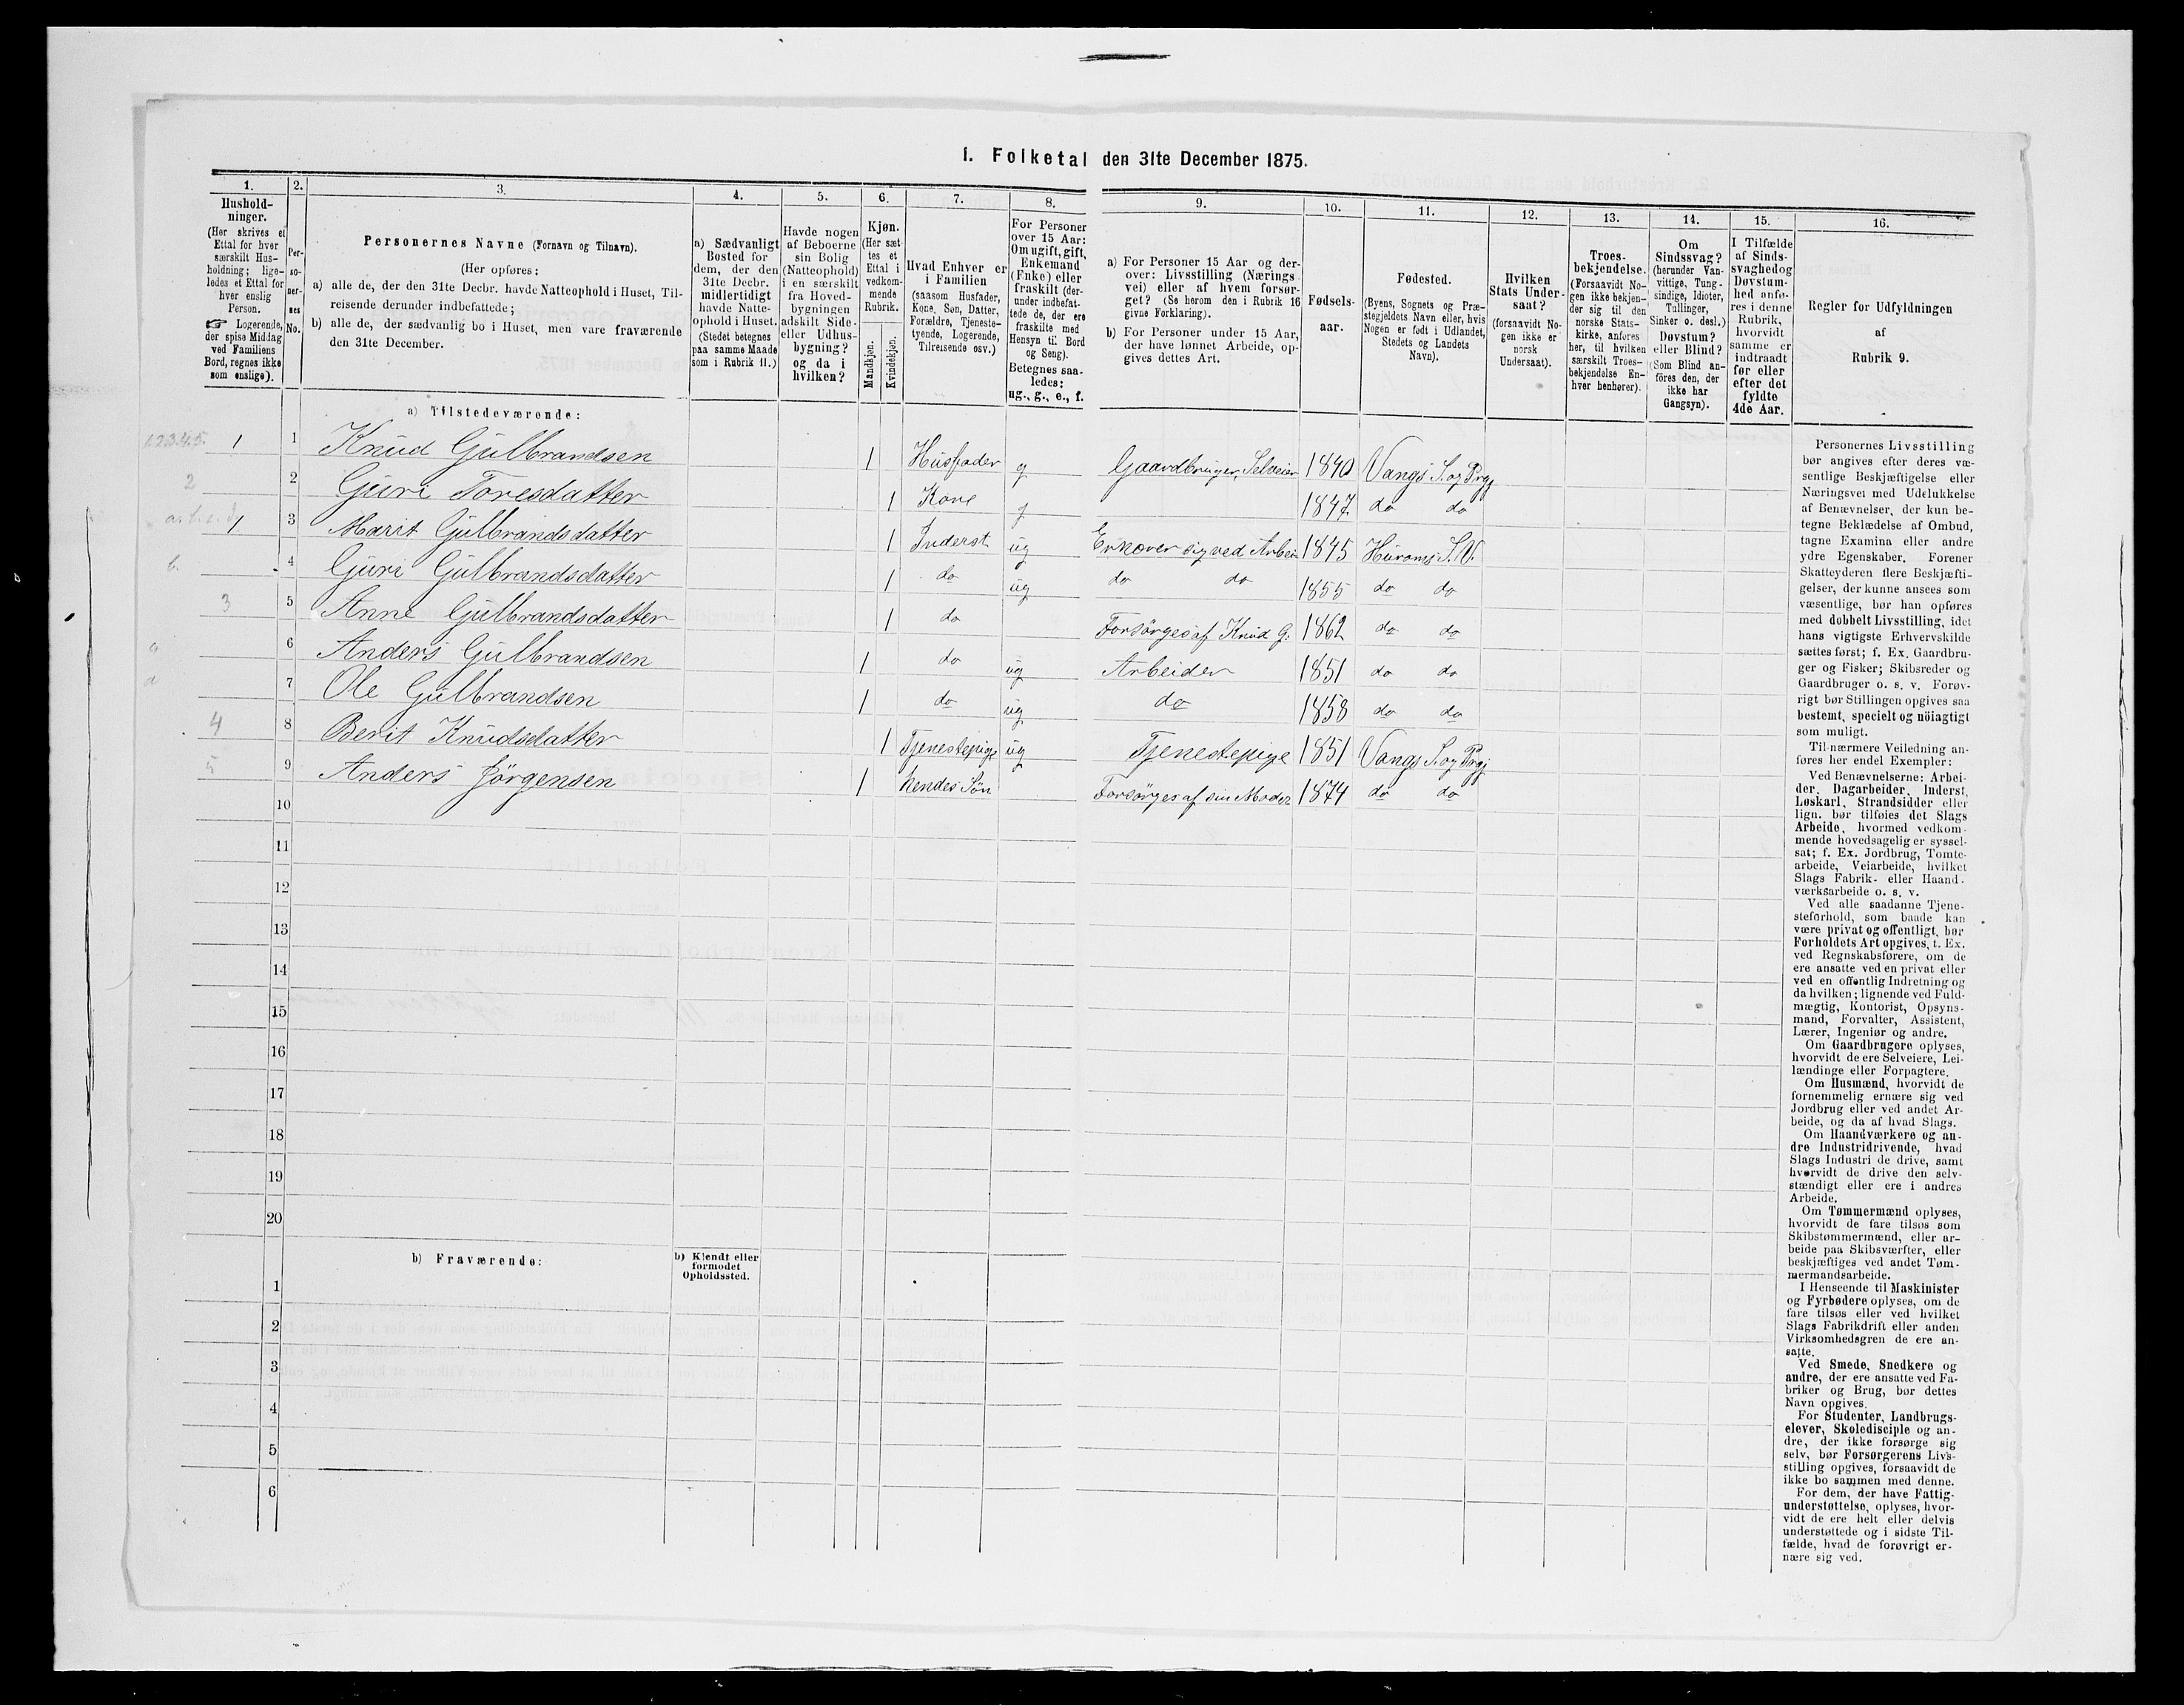 1. Folketal den 31te December 1875.
1.
Hushold-
ninger.
(Her skrives et
Ettal for hver
særskilt Hus-
holdning; lige-
ledes et Ettal for
hver enslig
Person.
☞ Logerende,
der spise Middag
ved Familiens
Bord, regnes ikke
som enslige).
2.
Per-
so-
ner-
nes
No.
3.
Personernes Navne (Fornavn og Tilnavn).
(Her opføres:
a) alle de, der den 31te Decbr. havde Natteophold i Huset, Til-
reisende derunder indbefattede;
b) alle de, der sædvanlig bo i Huset, men vare fraværende
den 31te December.
4.
a) Sædvanligt
Bosted for
dem, der den
31te Decbr.
midlertidigt
havde Natte-
ophold i Huset.
(Stedet betegnes
paa samme Maade
som i Rubrik 11.)
5.
Havde nogen
af Beboerne
sin Bolig
(Natteophold)
i en særskilt
fra Hoved-
bygningen
adskilt Side-
eller Udhus-
bygning?
og da i
hvilken?
6.
Kjøn.
(Her sæt-
tes et
Ettal i
vedkom-
mende
Rubrik.
Mandkjøn.
Kvindekjøn.
7.
Hvad Enhver er
i Familien
(saasom Husfader,
Kone, Søn, Datter,
Forældre, Tjeneste-
tyende, Logerende,
Tilreisende osv.)
8.
For Personer
over 15 Aar:
Om ugift, gift,
Enkemand
(Enke) eller
fraskilt (der-
under indbefat-
tede de, der ere
fraskilte med
Hensyn til Bord
og Seng).
Betegnes saa-
ledes:
ug., g., e., f.
9.
a) For Personer 15 Aar og der-
over: Livsstilling (Nærings
vei) eller af hvem forsør-
get? (Se herom den i Rubrik 16
givne Forklaring).
b) For Personer under 15 Aar,
der have lønnet Arbeide, op-
gives dettes Art.
10.
Fødsels-
aar.
11.
Fødested.
(Byens, Sognets og Præ-
stegjeldets Navn eller, hvis
Nogen er født i Udlandet,
Stedets og Landets
Navn).
12.
Hvilken
Stats Under-
saat?
(forsaavidt No-
gen ikke er
norsk
Undersaat).
13.
Troes-
bekjendelse.
(Forsaavidt No-
gen ikke bekjen-
der sig til den
norske Stats-
kirke, anføres
her, til hvilken
særskilt Troes-
bekjendelse En-
hver henhører).
14.
Om
Sindssvag?
(herunder Van-
vittige, Tung-
sindige, Idioter,
Tullinger,
Sinker o. desl.)
Døvstum?
eller Blind?
(Som Blind an-
föres den, der
ikke har
Gangsyn).
15.
I Tilfælde
af Sinds-
svaghed og
Døvstum-
hed anfø-
res i denne
Rubrik,
hvorvidt
samme er
indtraadt
før eller
efter det
fyldte
4de Aar.
16.
Regler for Udfyldningen
af
Rubrik 9.
a) Tilstedeværende:
1.2.3.4.5. 1 1 Knud Gulbrandsen 1 Husfader g Gaardbruger, Selveier 1840 Vangs S. og Prgj
2 2 Guri Toresdatter 1 Kone g 1847 do do
1 3 Marit Gulbrandsdatter 1 Inderst ug Ernærer sig ved Arbeide 1845 Hurums S. V.
b. 4 Guri Gulbrandsdatter 1 do ug do do 1855 do do
3 5 Anne Gulbrandsdatter 1 do Forsörges af Knud G. 1862 do do
c 6 Anders Gulbrandsen 1 do ug Arbeider 1851 do do
d 7 Ole Gulbrandsen 1 do ug do 1858 do do
4 8 Berit Knudsdatter 1 Tjenestepige ug Tjenestepige 1851 Vangs S. og Prgj
5 9 Anders Jörgensen 1 hendes Søn Forsörges af sin Moder 1874 do do
10
11
12
13
14
15
16
17
18
19
20
b) Fraværende:
b) Kjendt eller
formodet
Opholdssted.
1
2
3
4
5
6
Personernes Livsstilling
bør angives efter deres væ-
sentlige Beskjæftigelse eller
Næringsvei med Udelukkelse
af Benævnelser, der kun be-
tegne Beklædelse af Ombud,
tagne Examina eller andre
ydre Egenskaber. Forener
Skatteyderen flere Beskjæfti-
gelser, der kunne ansees som
væsentlige, bør han opføres
med dobbelt Livsstilling, idet
hans vigtigste Erhvervskilde
sættes først; f. Ex. Gaardbru-
ger og Fisker; Skibsreder og
Gaardbruger o. s. v. Forøv-
rigt bør Stillingen opgives saa
bestemt, specielt og nöiagtigt
som muligt.
Til nærmere Veiledning an-
føres her endel Exempler:
Ved Benævnelserne: Arbei-
der, Dagarbeider, Inderst,
Løskarl, Strandsidder eller
lign. bør tilføies det Slags
Arbeide, hvormed vedkom-
mende hovedsagelig er syssel-
sat; f. Ex. Jordbrug, Tomte-
arbeide, Veiarbeide, hvilket
Slags Fabrik- eller Haand-
værksarbeide o. s. v.
Ved alle saadanne Tjene-
steforhold, som baade kan
være privat og offentligt, bør
Forholdets Art opgives, t. Ex.
ved Regnskabsførere, om de
ere ansatte ved en privat eller
ved en offentlig Indretning og
da hvilken; lignende ved Fuld-
mægtig, Kontorist, Opsyns-
mand, Forvalter, Assistent,
Lærer, Ingeniør og andre.
Om Gaardbrugere oplyses,
hvorvidt de ere Selveiere, Lei-
lændinge eller Forpagtere.
Om Husmænd, hvorvidt de
fornemmelig ernære sig ved
Jordbrug eller ved andet Ar-
beide, og da af hvad Slags.
Om Haandværkere og an-
dre Industridrivende, hvad
Slags Industri de drive, samt
hvorvidt de drive den selv-
stændigt eller ere i andres
Arbeide.
Om Tømmermænd oplyses,
hvorvidt de fare tilsøs som
Skibstømmermænd, eller ar-
beide paa Skibsværfter, eller
beskjæftiges ved andet Tøm-
mermandsarbeide.
I Henseende til Maskinister
og Fyrbødere oplyses, om de
fare tilsøs eller ved hvilket
Slags Fabrikdrift eller anden
Virksomhedsgren de ere an-
satte.
Ved Smede, Snedkere og
andre, der ere ansatte ved Fa-
briker og Brug, bør dettes
Navn opgives.
For Studenter, Landbrugs-
elever, Skoledisciple og an-
dre, der ikke forsørge sig
selv, bør Forsørgerens Livs-
stilling opgives, forsaavidt de
ikke bo sammen med denne.
For dem, der have Fattig-
understøttelse, oplyses, hvor-
vidt de ere helt eller delvis
understøttede og i sidste Til-
fælde, hvad de forøvrigt er-
nære sig ved.